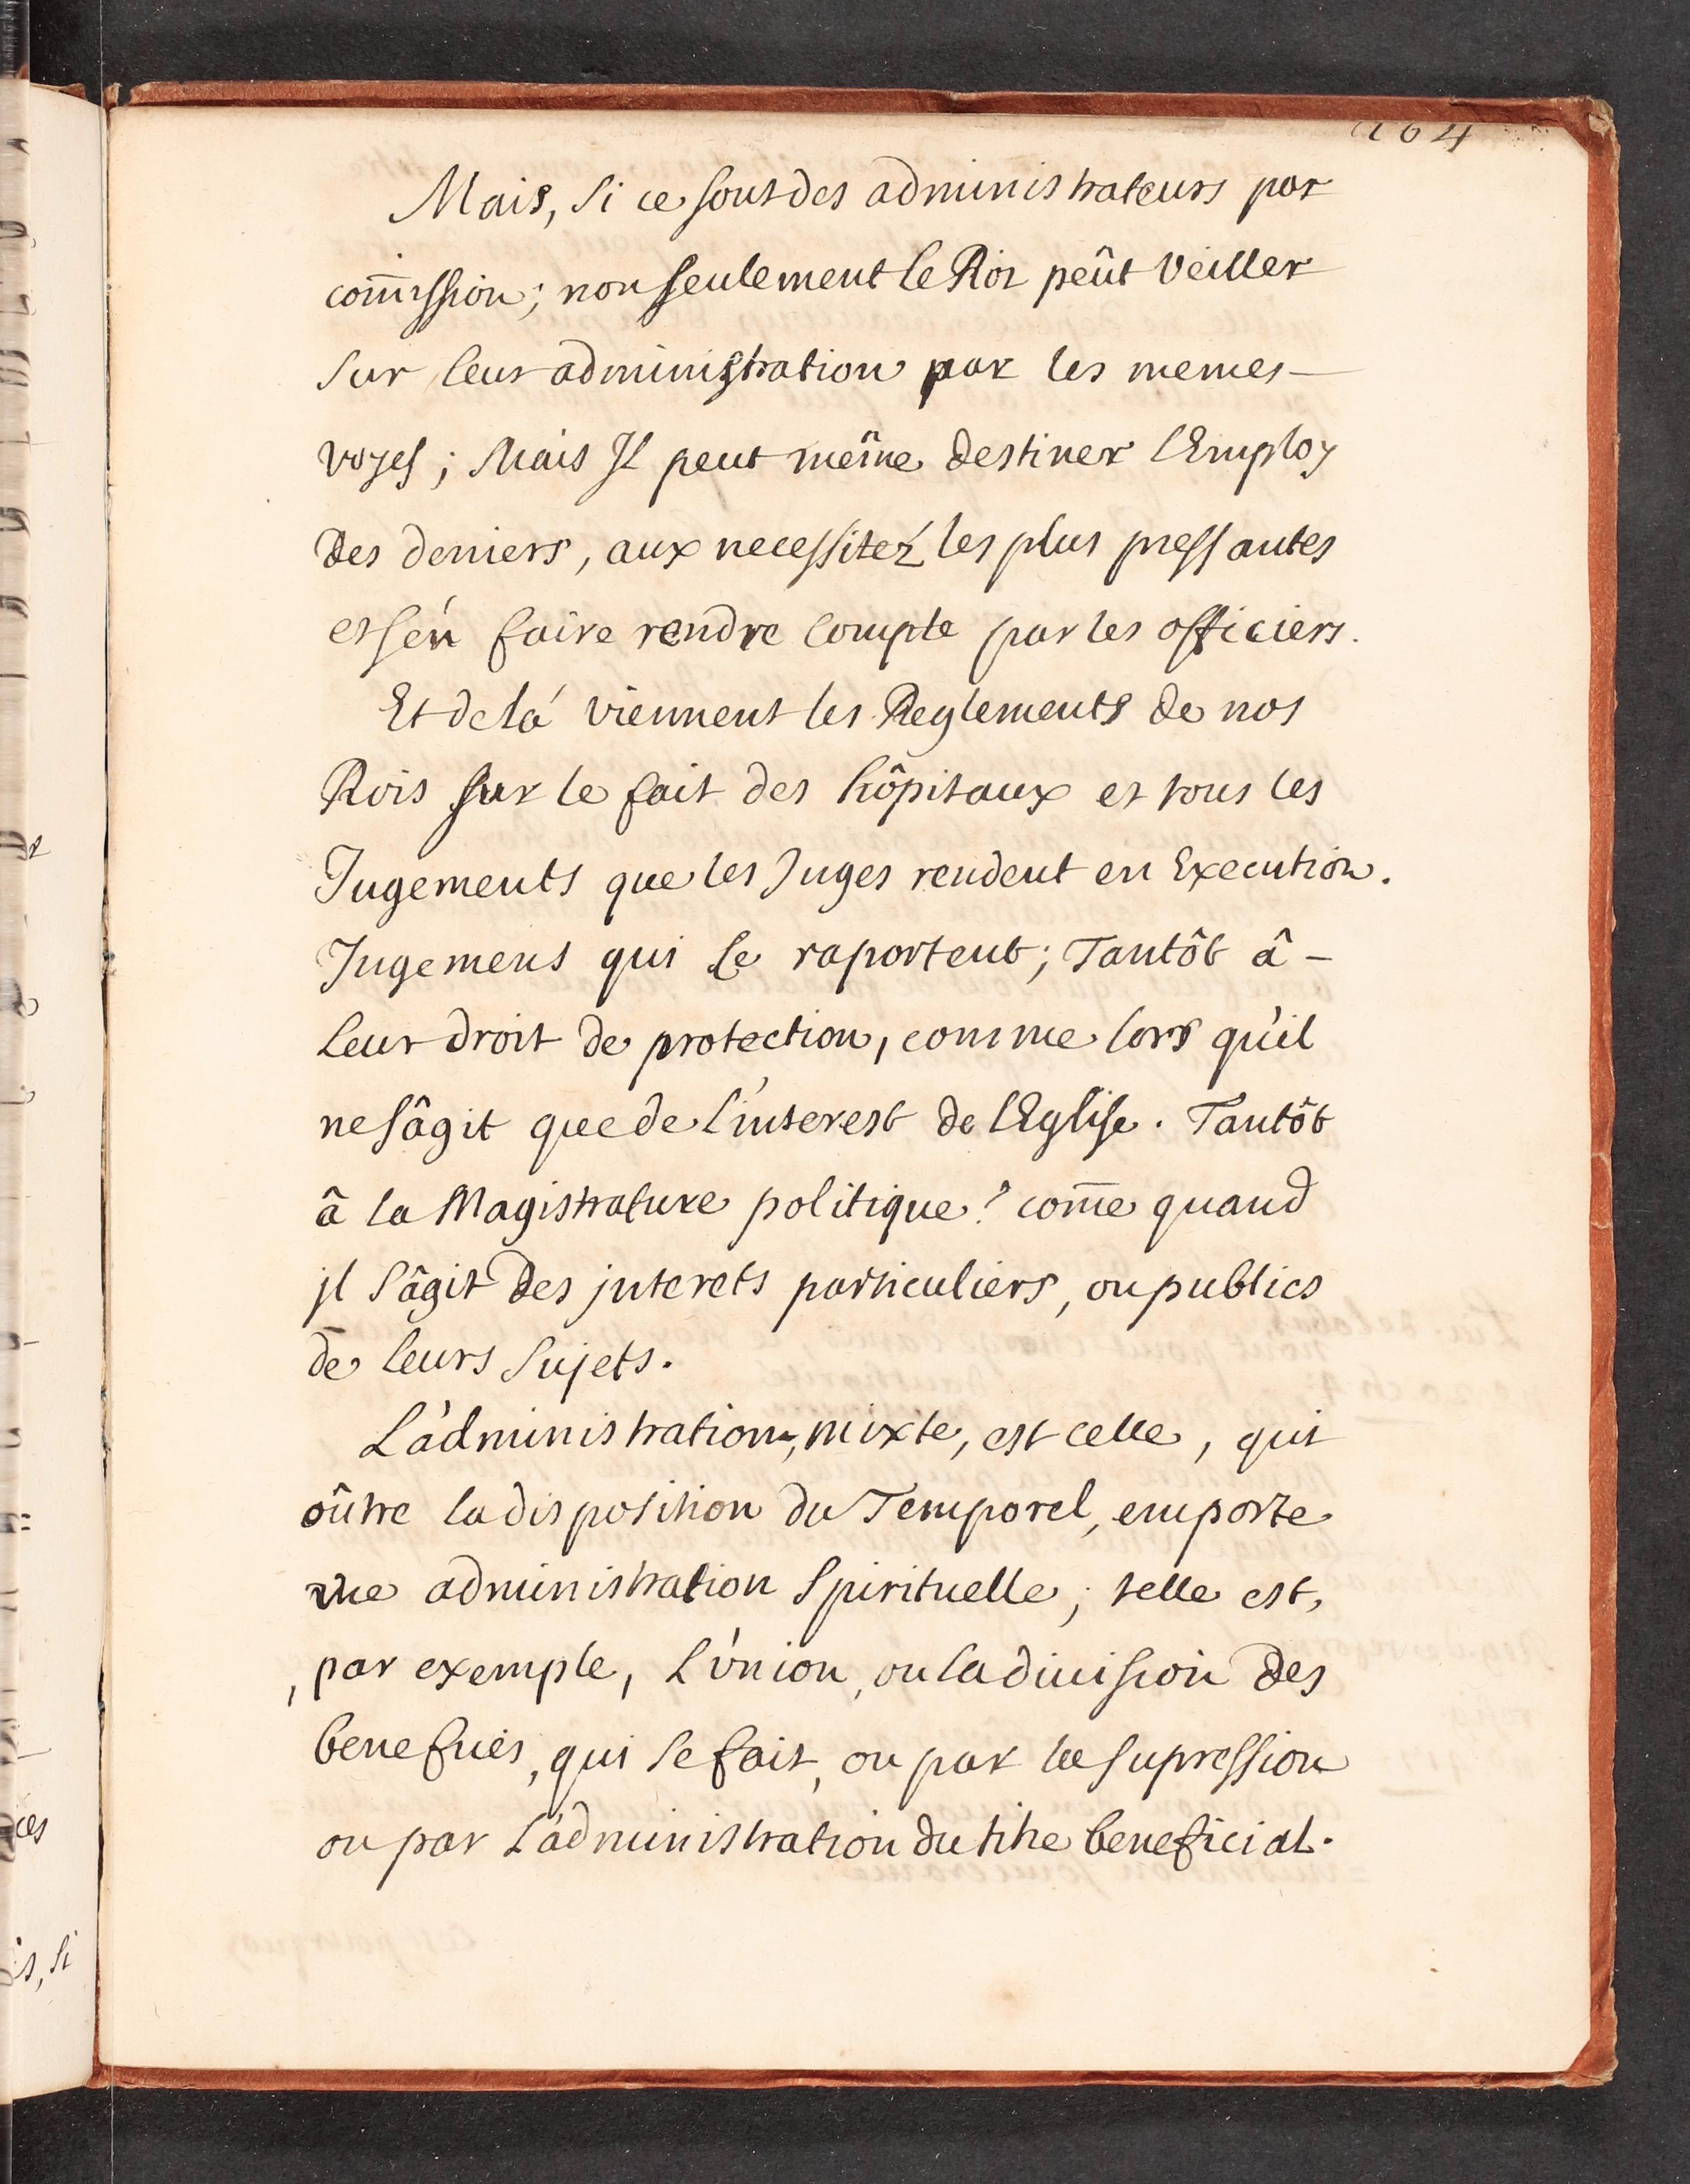 164
Mais, si ce sont des administrateurs par
com̄ission; non seulement le Roi peût veiller
sur leur administration par les memes
voyes; Mais Il peut même destiner l'Employ
des deniers, aux necessitez les plus pressantes
et s'en faire rendre compte par les officiers.
Et de lá viennent les Reglements de nos
Rois sur le fait des hôpitaux et tous les
Jugements que les Juges rendent en Execution.
Jugemens qui se raportent; Tantôt â
leur droit de protection, comme lors qu'il
ne s'âgit que de l'interest de l'Eglise. Tantôt
â la Magistrature politique? com̄e quand
jl s'âgit des jnterets particuliers, ou publics
de leurs sujets.
L'administration, mixte, est celle, qui
oûtre la disposition du Temporel, emporte
vne administration spirituelle; telle est,
, par exemple, L'vnion, ou la diuision des
benefices, qui se fait, ou par la supression
ou par L'administration du titre beneficial.
ces
is, si